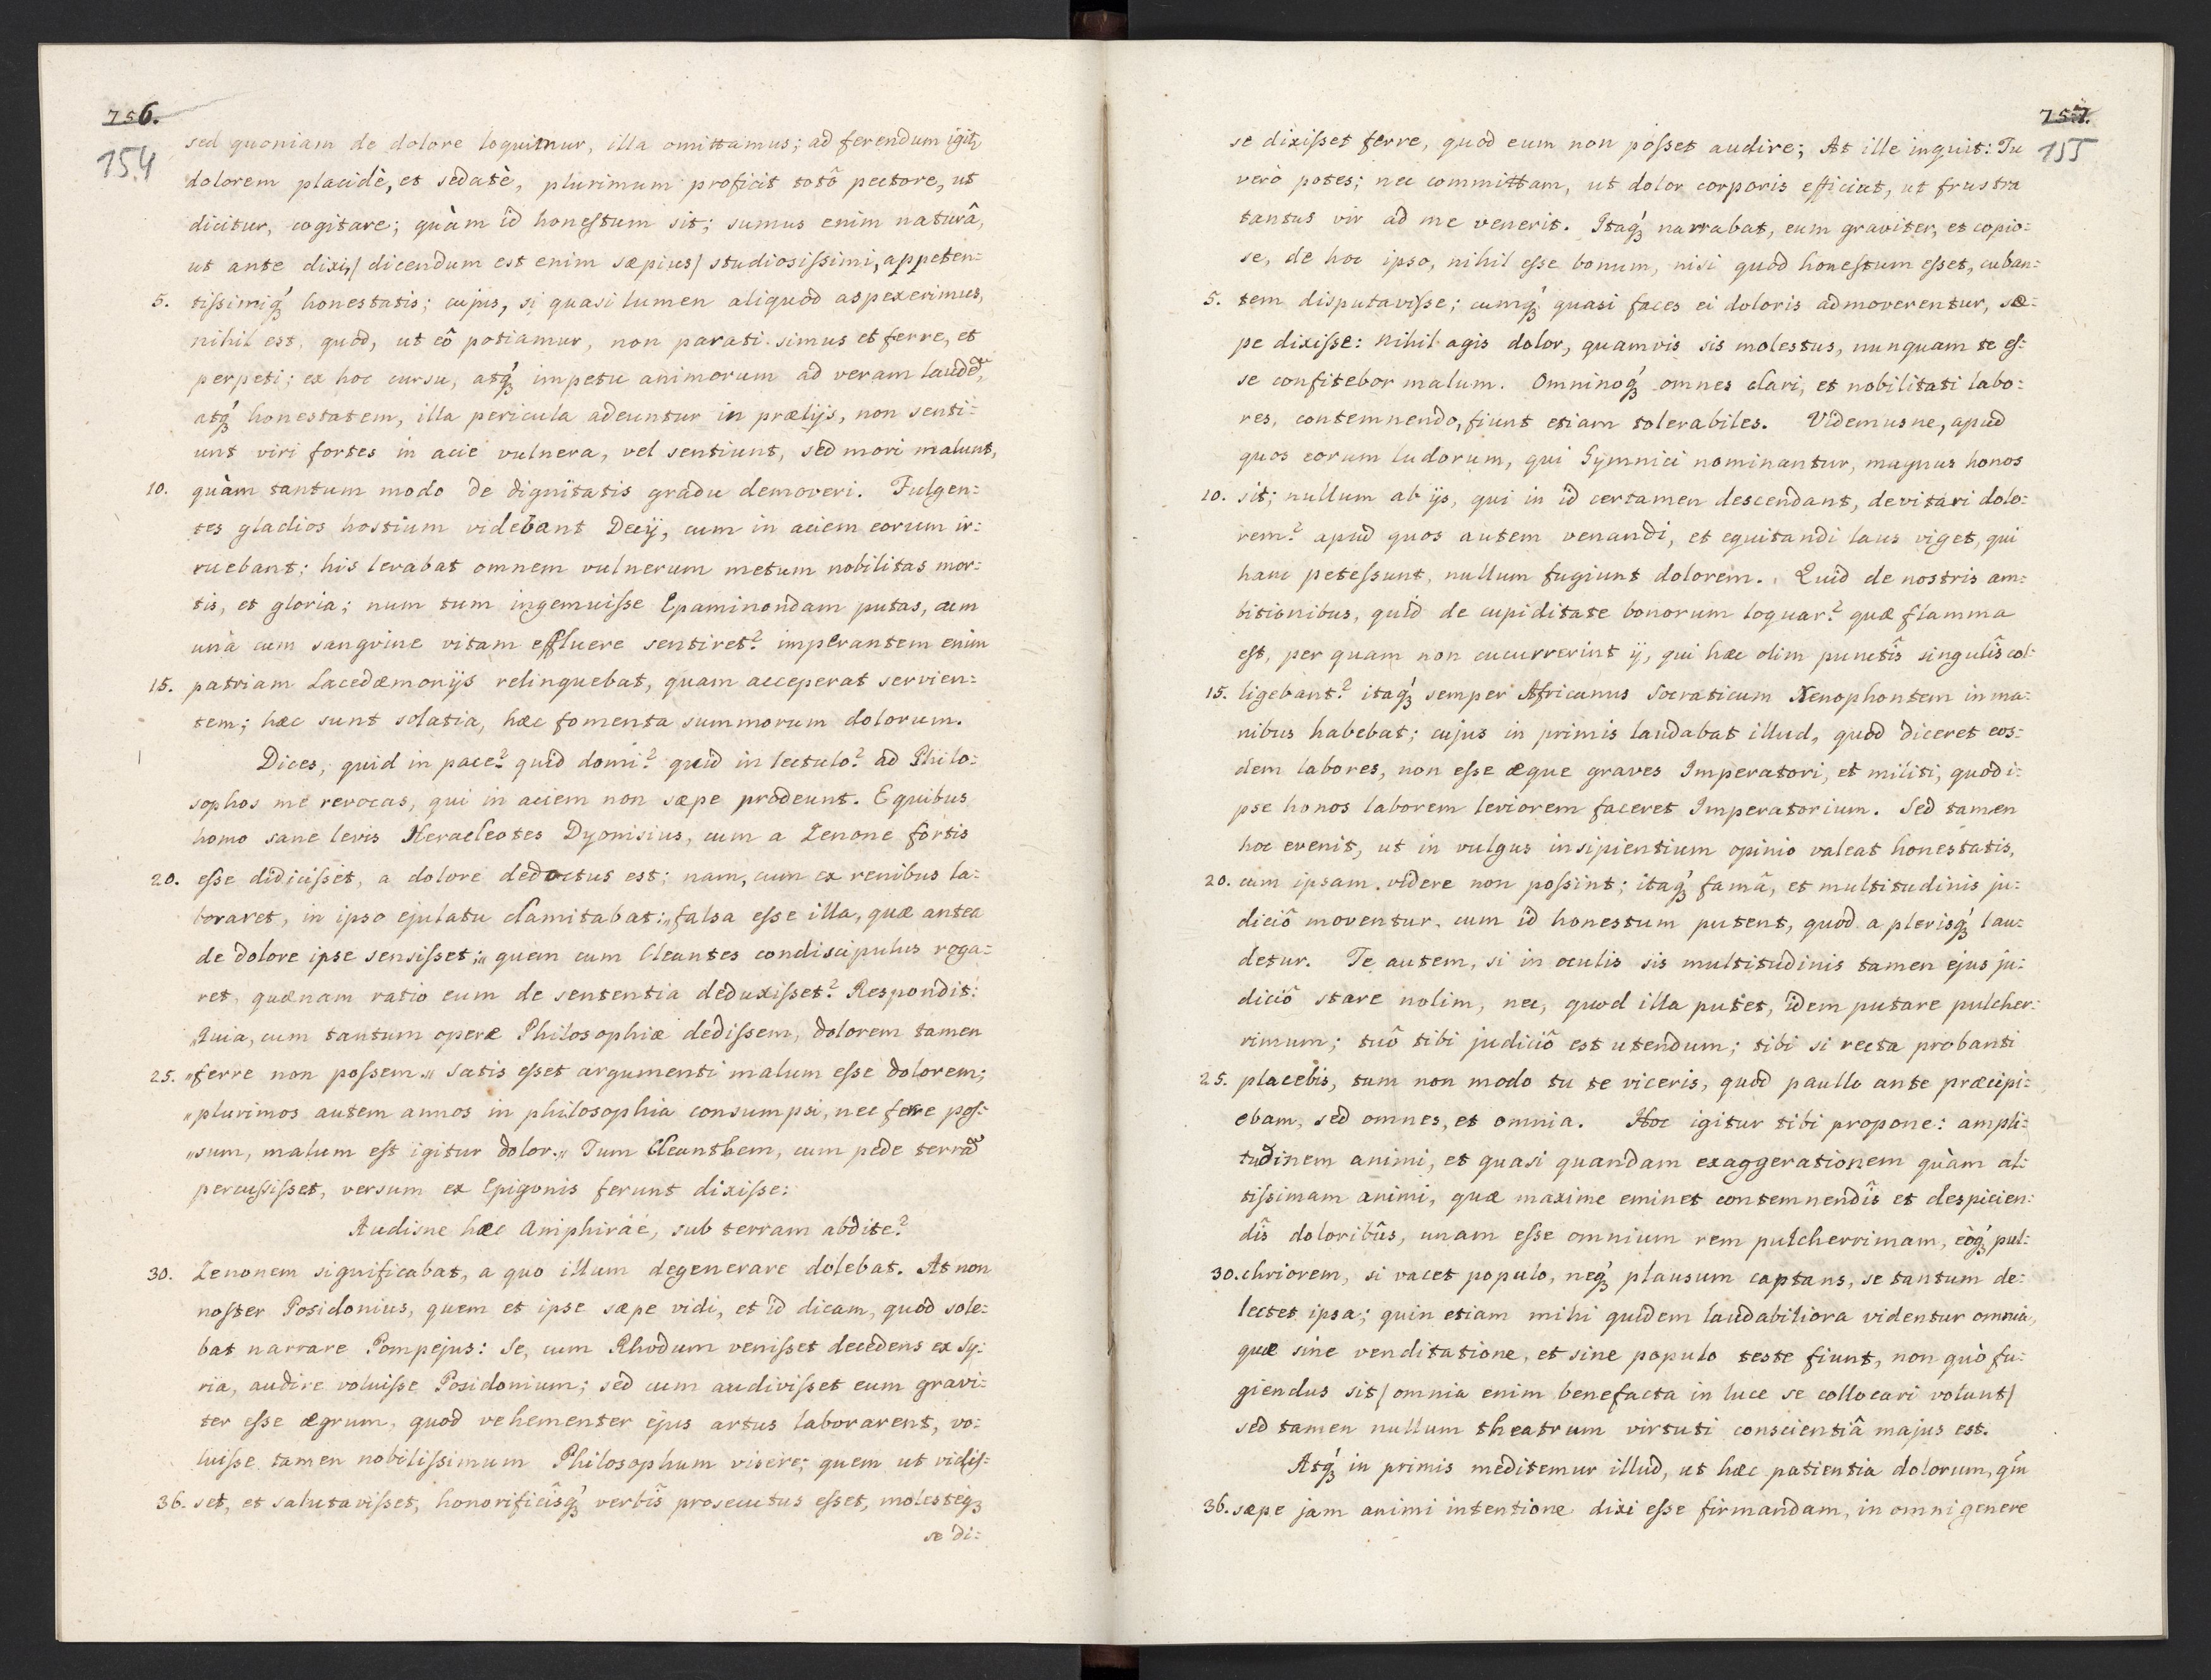 756.
154
sed quoniam de dolore loquimur, illa omittamus; ad ferendum igitr
dolorem placidè, et sedatè, plurimum proficit totô pectore, ut
dicitur, cogitare; quàm id honestum sit; sumus enim naturâ,
ut ante dixi,/ dicendum est enim sæpius/ studiosissimi, appeten=
5. tissimiq́ꝫ honestatis; cujus, si quasi lumen aliquod aspexerimus,
nihil est, quod, ut eô potiamur, non parati simus et ferre, et
perpeti; ex hoc cursu, atq́ꝫ impetu animorum ad veram laudẽ,
atq́ꝫ honestatem, illa pericula adeuntur in prælijs, non senti=
unt viri fortes in acie vulnera, vel sentiunt, sed mori malunt,
10. quàm tantum modo de dignitatis gradu demoveri. Fulgen=
tes gladios hostium videbant Decij, cum in aciem eorum ir=
ruebant; his levabat omnem vulnerum metum nobilitas mor=
tis, et gloria; num tum ingemuisse Epaminondam putas, cum
unà cum sangvine vitam effluere sentiret? imperantem enim
15. patriam Lacedæmonijs relinquebat, quam acceperat servien=
tem; hæc sunt solatia, hæc fomenta summorum dolorum.
Dices, quid in pace? quid domi? quid in lectulo? ad Philo=
sophos me revocas, qui in aciem non sæpe prodeunt. E quibus
homo sane levis Heracleotes Dyonisius, cum a Zenone fortis
20. esse didicisset, a dolore dedoctus est; nam, cum ex renibus la=
boraret, in ipso ejulatu clamitabat: „falsa esse illa, quæ antea
de dolore ipse sensisset;„ quem cum Cleantes condiscipulus roga=
ret, quænam ratio eum de sententia deduxisset? Respondit:
„Quia, cum tantum operæ Philosophiæ dedissem, dolorem tamen
25. „ferre non possem„ satis esset argumenti malum esse dolorem;
„plurimos autem annos in philosophia consumpsi, nec ferre pos=
„sum, malum est igitur dolor.„ Tum Cleanthem, cum pede terrã
percussisset, versum ex Epigonis ferunt dixisse:
Audisne hæc Amphiráe, sub terram abdite?
30. Zenonem significabat, a quo illum degenerare dolebat. At non
noster Posidonius, quem et ipse sæpe vidi, et id dicam, quod sole=
bat narrare Pompejus: Se, cum Rhodum venisset decedens ex Sy=
ria, audire voluisse Posidonium; sed cum audivisset eum gravi=
ter esse ægrum, quod vehementer ejus artus laborarent, vo=
luisse tamen nobilissimum Philosophum visere; quem ut vidis=
36. set, et salutavisset, honorificîsq́ꝫ verbîs prosecutus esset, molesteq́ꝫ
se di=
757.
155
se dixisset ferre, quod eum non posset audire; At ille inquit: Tu
verò potes; nec committam, ut dolor corporis efficiat, ut frustra
tantus vir ad me venerit. Itaq́ꝫ narrabat, eum graviter, et copio=
se, de hoc ipso, nihil esse bonum, nisi quod honestum esset, cuban=
5. tem disputavisse; cumq́ꝫ quasi faces ei doloris admoverentur, sæ=
pe dixisse: nihil agis dolor, quamvis sis molestus, nunquam te es=
se confitebor malum. Omninoq́ꝫ omnes clari, et nobilitati labo=
res, contemnendo, fiunt etiam tolerabiles. Videmusne, apud
quos eorum ludorum, qui Gymnici nominantur, magnus honos
10. sit; nullum ab ijs, qui in id certamen descendant, devitari dolo=
rem? apud quos autem venandi, et equitandi laus viget, qui
hanc petessunt, nullum fugiunt dolorem. Quid de nostris am=
bitionibus, quid de cupiditate bonorum loquar? quæ flamma
est, per quam non cucurrerint ij, qui hæc olim punctîs singulîs col=
15. ligebant? itaq́ꝫ semper Africanus Socraticum Xenophontem in ma=
nibus habebat; cujus in primis laudabat illud, quod diceret eos=
dem labores, non esse æque graves Imperatori, et militi, quod i=
pse honos laborem leviorem faceret Imperatorium. Sed tamen
hoc evenit, ut in vulgus insipientium opinio valeat honestatis,
20. cum ipsam videre non possint; itaq́ꝫ famâ, et multitudinis ju=
diciô moventur, cum id honestum putent, quod a plerisq́ꝫ lau=
detur. Te autem, si in oculis sis multitudinis tamen ejus ju=
diciô stare nolim, nec, quod illa putet, idem putare pulcher=
rimum; tuô tibi judiciô est utendum; tibi si recta probanti
25. placebis, tum non modo tu te viceris, quod paullo ante præcipi=
ebam, sed omnes, et omnia. Hoc igitur tibi propone: ampli=
tudinem animi, et quasi quandam exaggerationem quàm al=
tissimam animi, quæ maxime eminet contemnendîs et despicien=
dîs doloribûs, unam esse omnium rem pulcherrimam, eòq́ꝫ pul=
30. chriorem, si vacet populo, neq́ꝫ plausum captans, se tantum de=
lectet ipsa; quin etiam mihi quidem laudabiliora videntur omnia,
quæ sine venditatione, et sine populo teste fiunt, non quò fu=
giendus sit/ omnia enim benefacta in luce se collocari volunt/
sed tamen nullum theatrum virtuti conscientiâ majus est.
Atq́ꝫ in primis meditemur illud, ut hæc patientia dolorum, qm̃
36. sæpe jam animi intentione dixi esse firmandam, in omni genere